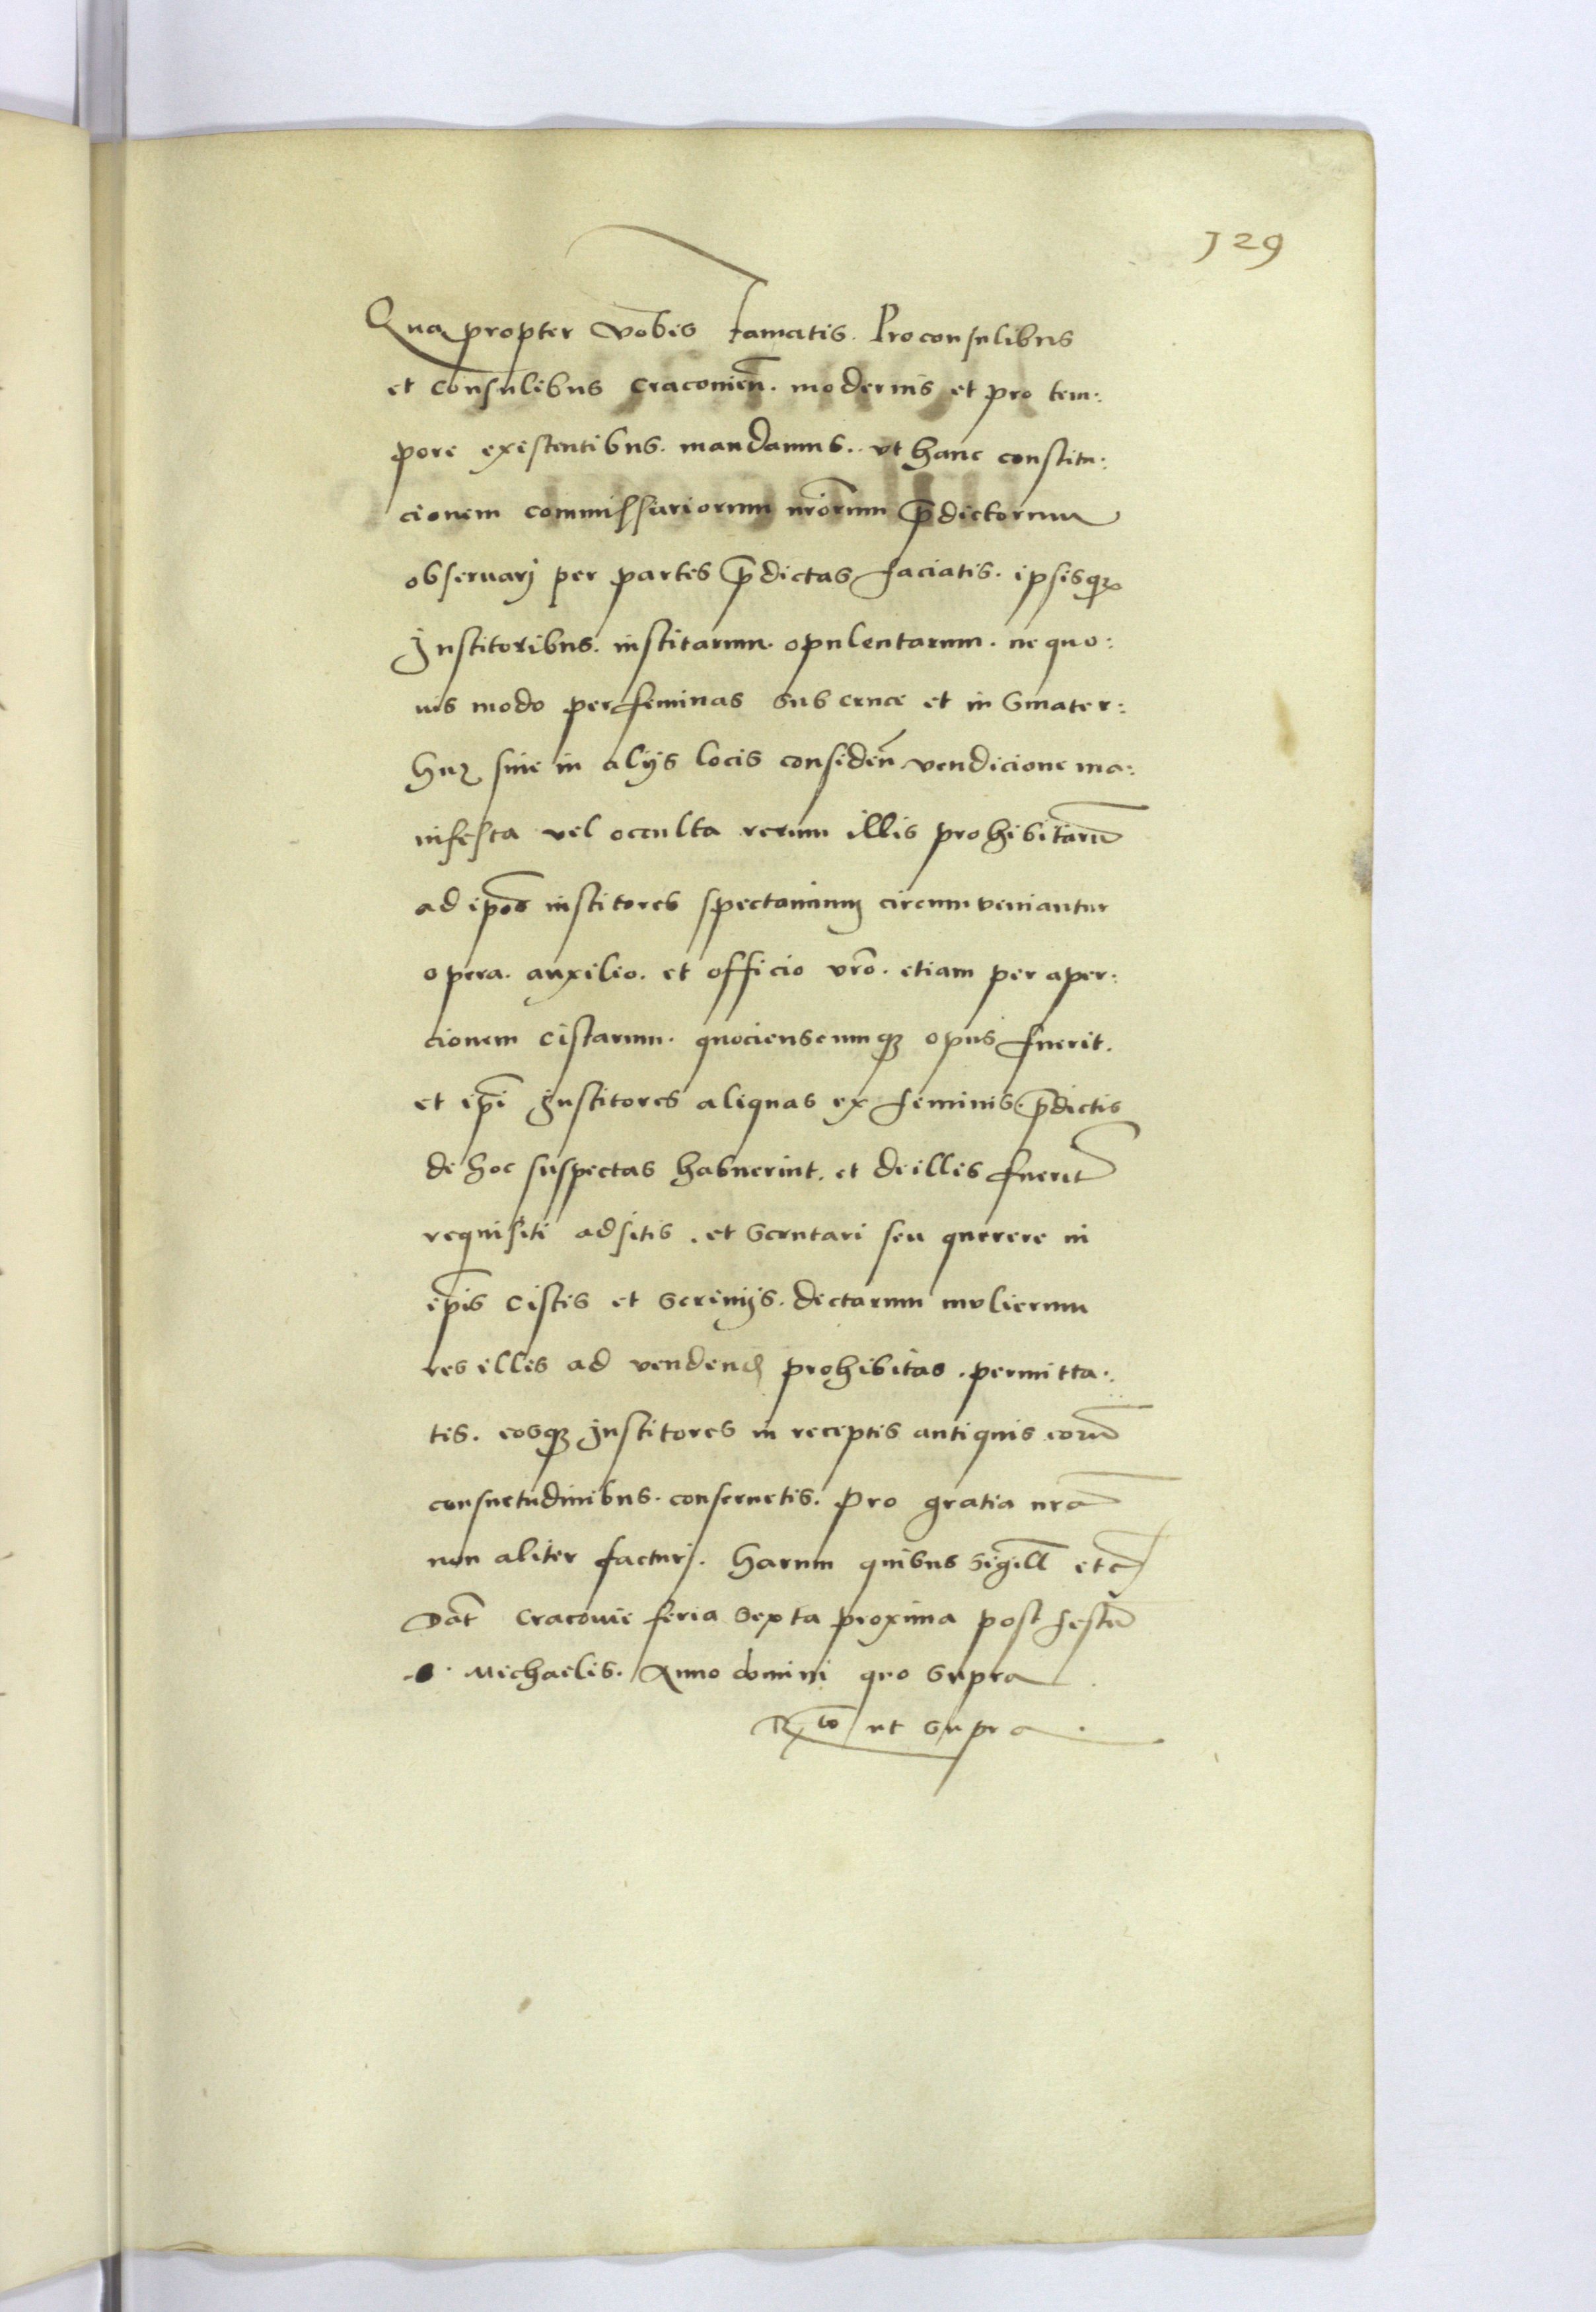 129
Qua propter vobis famatis. Proconsulibus
et consulibus Cracouieñ. modernis et pro tem:
pore existentibus. mandamus. vt hanc constitu:
cionem commissariorum nr̄orum p̄dictorum
obseruarj per partes p̄dictas faciatis. ipsisqȝ
Institoribus. institarum. opulentarum. ne quo:
uis modo per feminas sub cruce et in Smater:
huz siue in alijs locis considen̄ vendicione ma:
nifesta vel occulta rerum illis prohibitarū
ad ip̄os institores spectancium circumveniantur
opera. auxilio. et officio vr̄o. etiam per aper:
cionem cistarum. quocienscumqȝ opus fuerit.
et ip̄i Institores aliquas ex feminis. p̄dictis
de hoc suspectas habuerint. et de illis fuerit̄
requisiti adsitis. et scrutari seu querere in
ip̄is cistis et scrinijs. dictarum mulierum
res illis ad vendend prohibitas. permitta:
tis. eosqȝ Institores in receptis antiquis eorū
consuetudinibus. conseruetis. pro gratia nr̄a
non aliter facturj. Harum quibus sigill̄ etc̄
Dat̄ Cracouie feria sexta proxima post festū
s. Michaelis. Anno domini quo supra
R̄to ut supra.